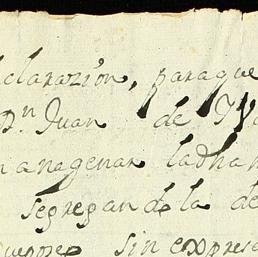 clarazion, paraque
Dn Juan de
anagenar ladha
segregan de la de
sin expresa